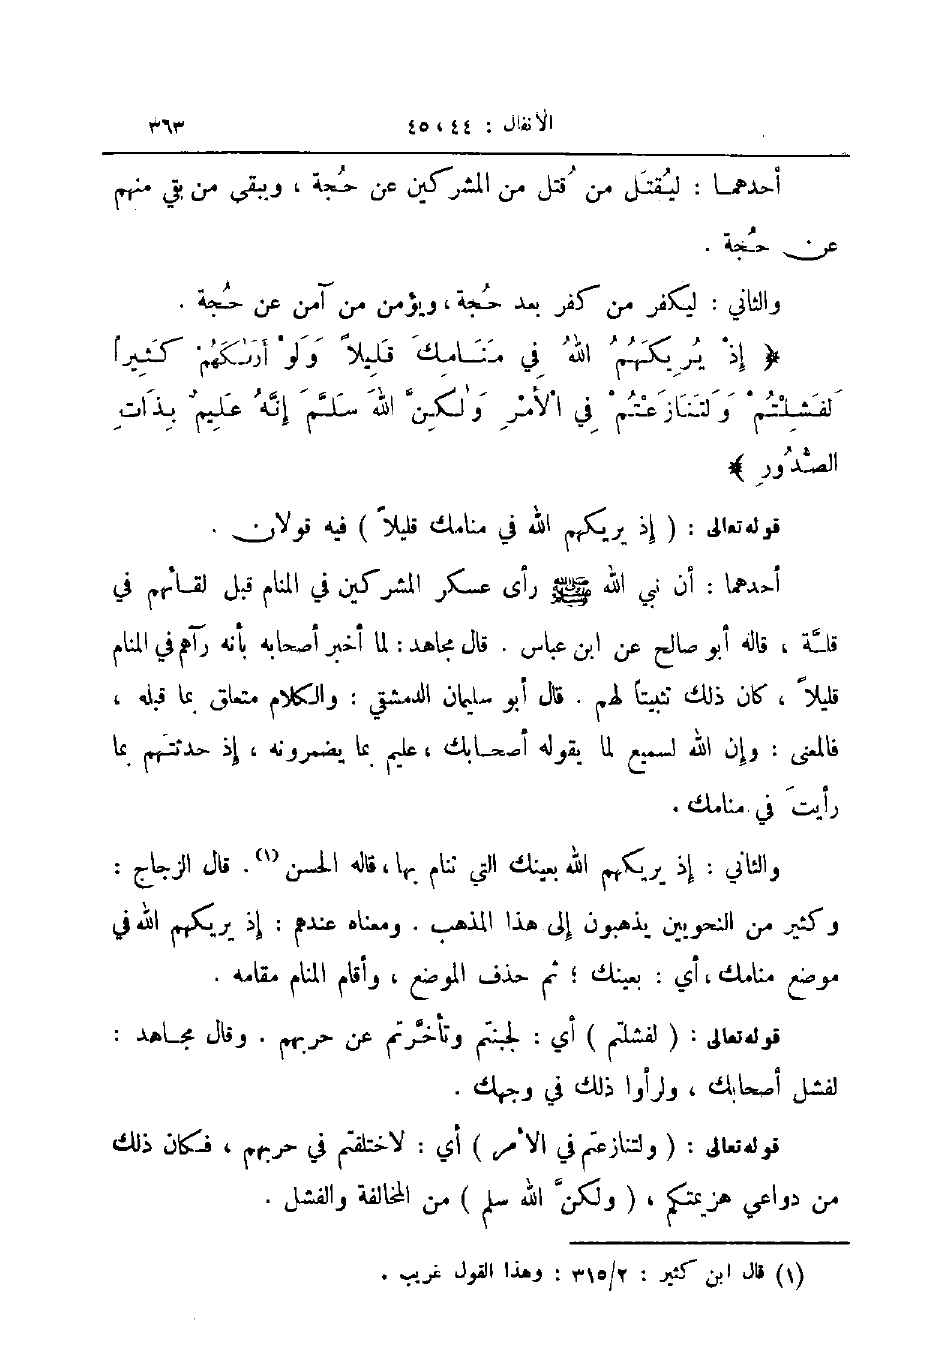 الأنفال : ٤٤ ، ٤٥ ٣٦٣
أحدهما : ليُقتَل من قُتل من المشركين عن حُجة ، ويبقى من بقي منهم
عن حُجة .
والثاني : ليكفر من كفر بعد حُجة ، ويؤمن من آمن عن حُجة .
﴿ إِذْ يُرِيكَهُمُ اللهُ فِي مَنَامِكَ قَلِيلاً وَلَوْ أَرَٰكَهُمْ كَثِيراً
لَفَشِلْتُمْ وَلَتَنَازَعْتُمْ فِي الْأَمْرِ وَلَٰكِنَّ اللهَ سَلَّمَ إِنَّهُ عَلِيمٌ بِذَاتِ
الصُّدُورِ ﴾
قوله تعالى : ( إذ يريكهم الله في منامك قليلاً ) فيه قولان .
أحدهما : أن نبي الله ﷺ رأى عسكر المشركين في المنام قبل لقائهم في
قلَّة ، قاله أبو صالح عن ابن عباس . قال مجاهد : لما أخبر أصحابه بأنه رآهم في المنام
قليلاً ، كان ذلك تثبيتاً لهم . قال أبو سليمان الدمشقي : والكلام متعلق بما قبله ،
فالمعنى : وإن الله لسميع لما يقوله أصحابك ، عليم بما يضمرونه ، إذ حدثتهم بما
رأيتَ في منامك .
والثاني : إذ يريكهم الله بعينك التي تنام بها ، قاله الحسن (١) . قال الزجاج :
وكثير من النحويين يذهبون إلى هذا المذهب . ومعناه عندهم : إذ يريكهم الله في
موضع منامك ، أي : بعينك ؛ ثم حذف الموضع ، وأقام المنام مقامه .
قوله تعالى : ( لفشلتم ) أي : لجبنتم وتأخَّرتم عن حربهم . وقال مجاهد :
لفشل أصحابك ، ولرأوا ذلك في وجهك .
قوله تعالى : ( ولتنازعتم في الأمر ) أي : لاختلفتم في حربهم ، فكان ذلك
من دواعي هزيمتكم ، ( ولكنَّ الله سلم ) من المخالفة والفشل .
(١) قال ابن كثير : ٣١٥/٢ : وهذا القول غريب .